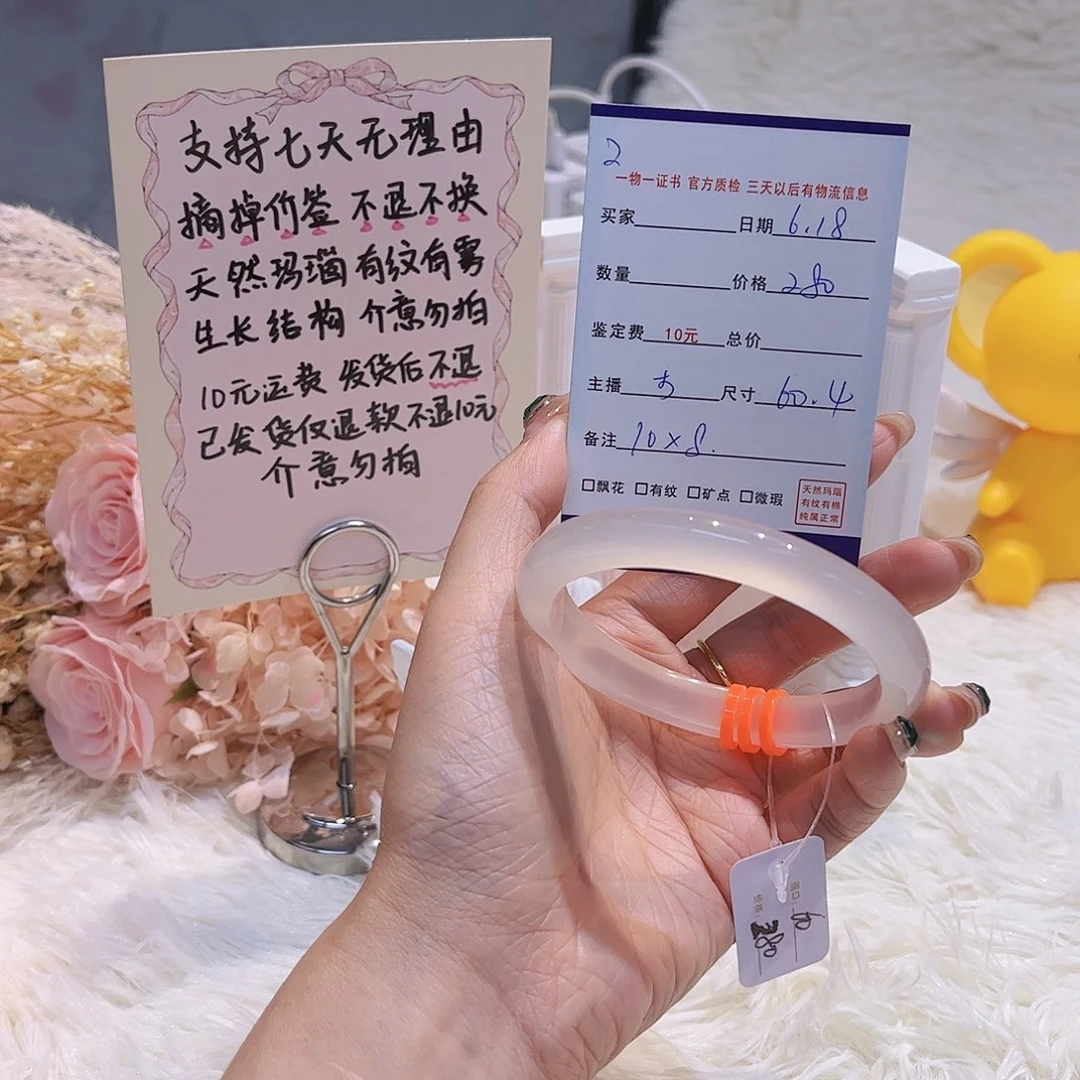 支持七天无理由
摘掉价签 不退不换
天然玛瑙有纹有雾
生长结构 介意勿拍
10元运费 发货后不退
已发货仅退款不退10元
介意勿拍
2
一物一证书 官方质检 三天以后有物流信息
买家 日期 6.18
数量 价格 280
鉴定费 10元 总价
主播 尺寸 60.4
备注 10×8.
□飘花 □有纹 □矿点 □微瑕
天然玛瑙
有纹有棉
纯属正常
圈口: 60
价格: 280